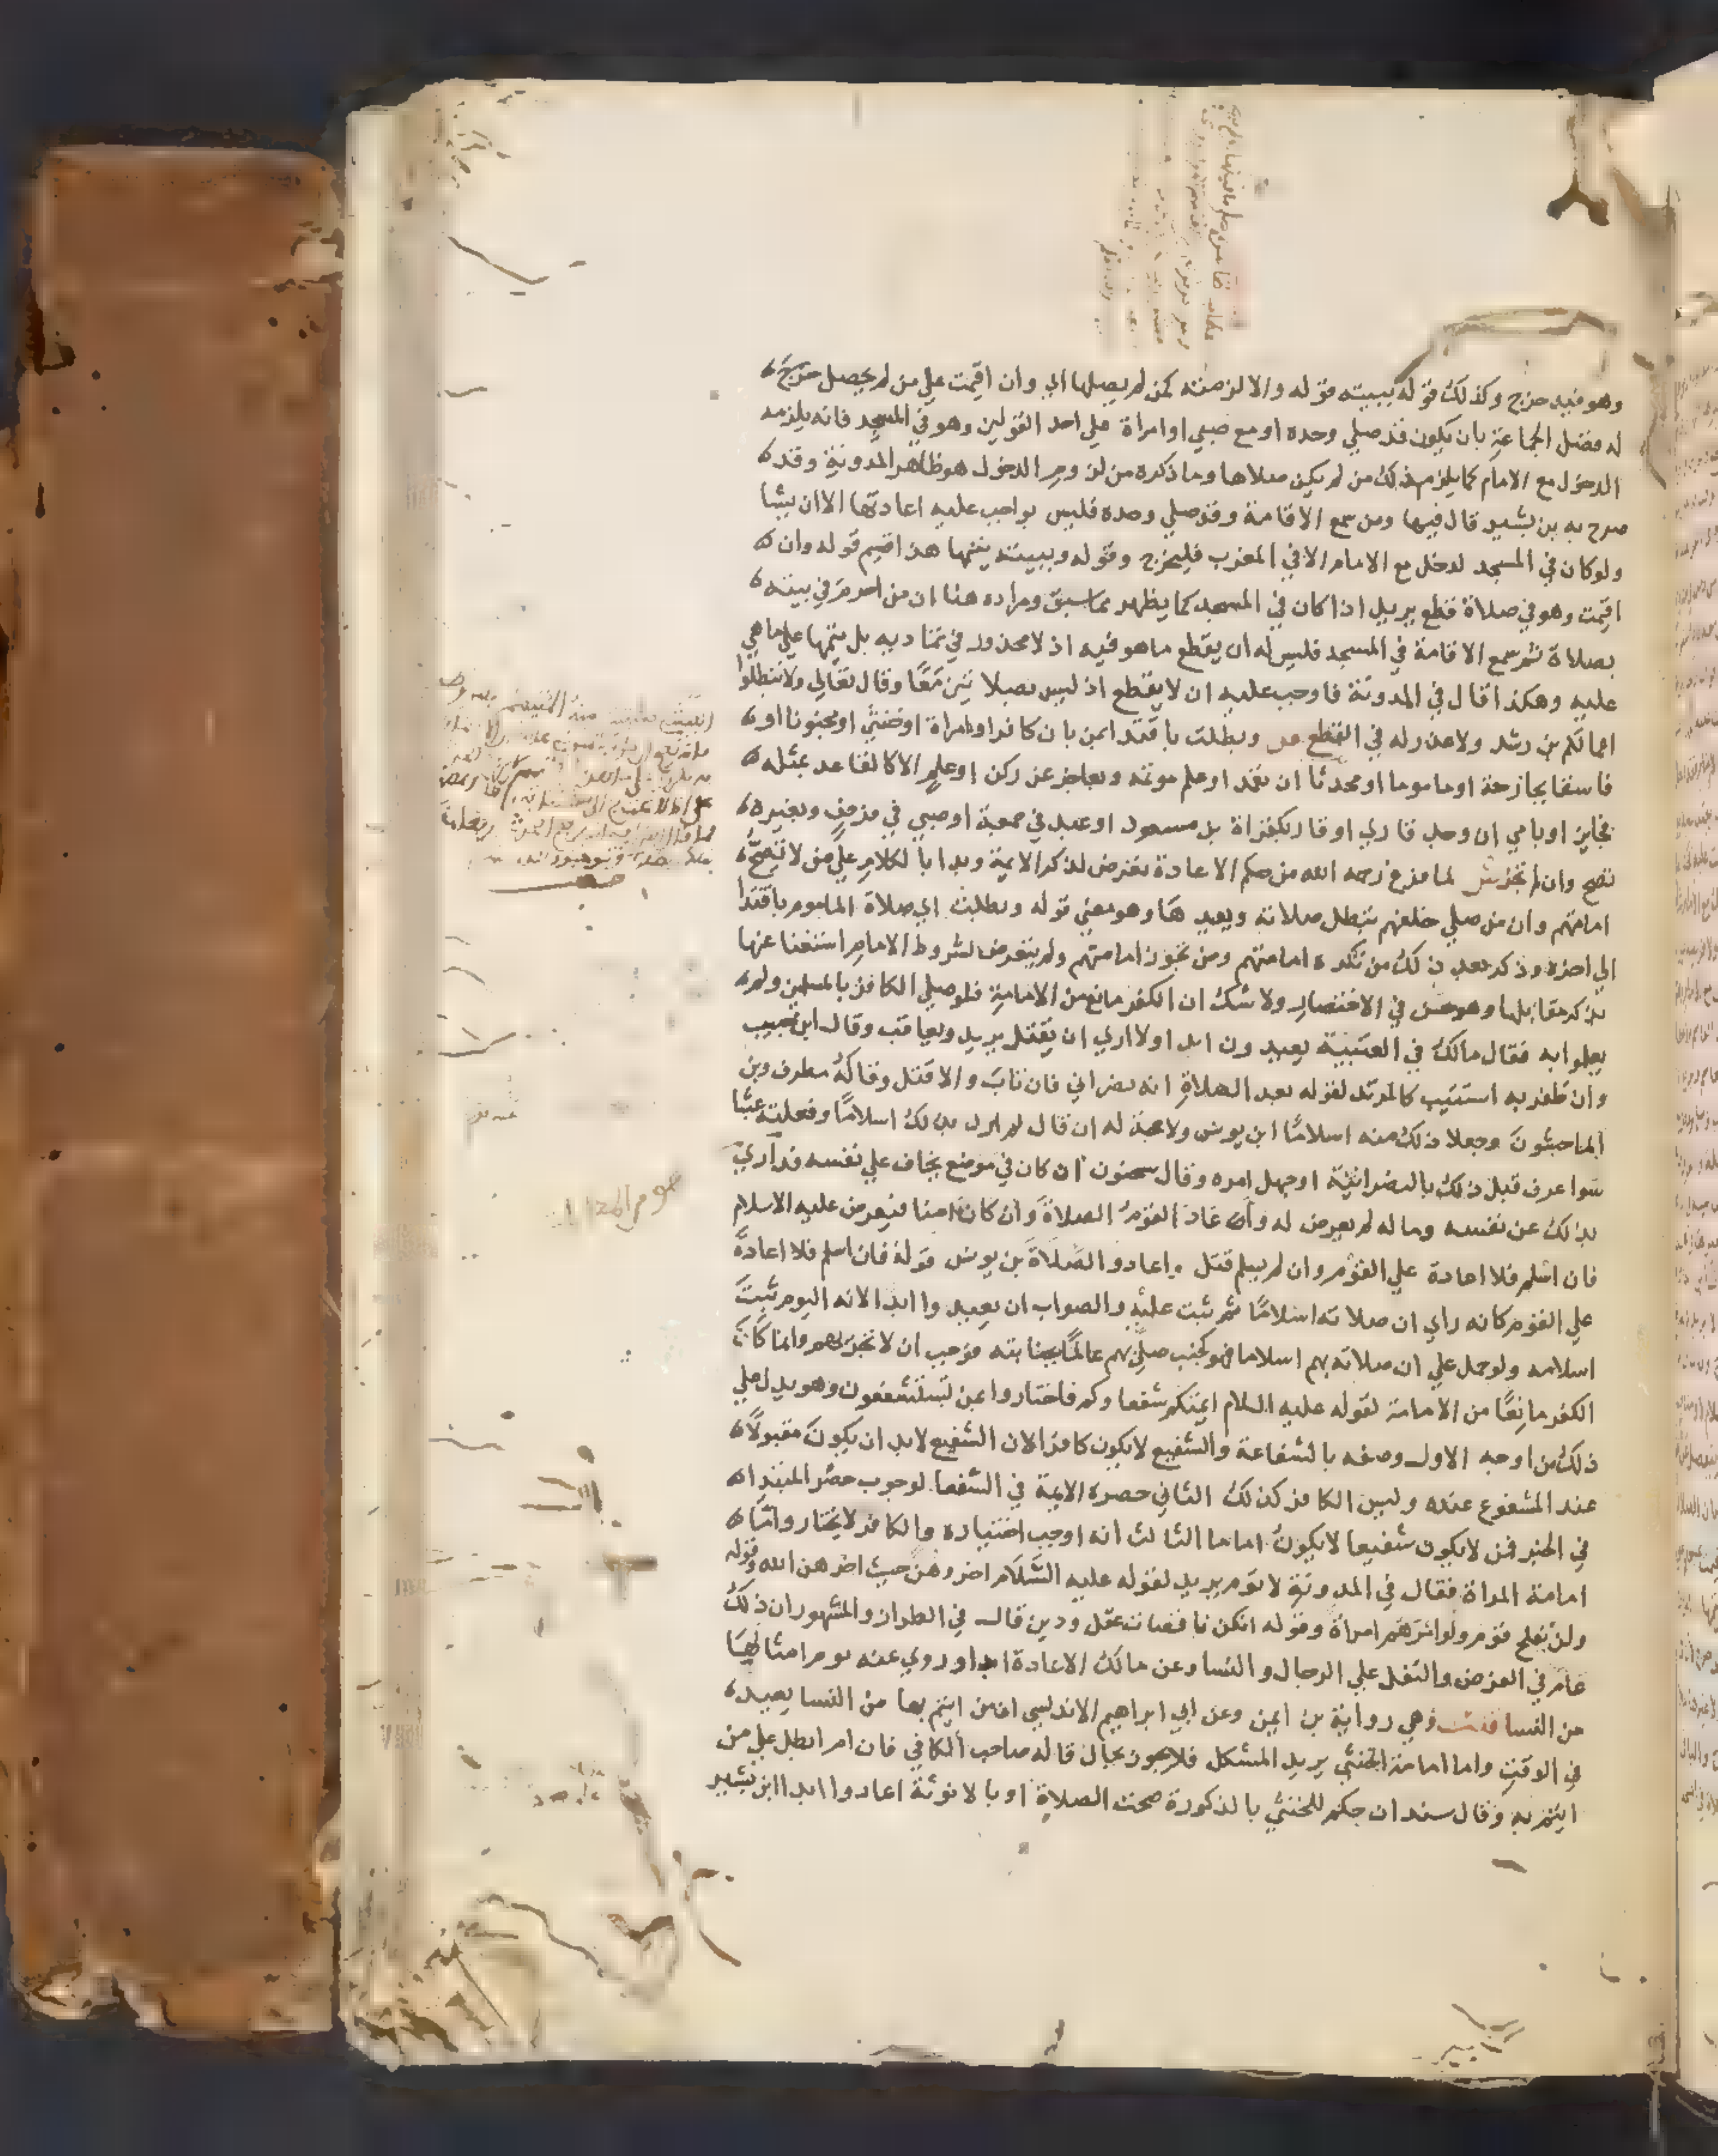 وهو فيه خرج وكذلك قوله ببيته قوله والا لزمته كمن لم يصلها اي وان اقيمت علي من لم يحصل
له فضل الجماعة بان يكون قد صلي وحده او مع صبي او امراة علي احد القولين وهو في المسجد فانه يلزمه
الدخول مع الامام كما يلزم ذلك من لم يكن صلاها وما ذكره من لزوم الدخول هو ظاهر المدونة وقد
صرح به بن بشير قال فيها ومن سمع الاقامة وقد صلي وحده فليس بواجب عليه اعادتها الا ان يشا
ولو كان في المسجد لدخل مع الامام الا في المغرب فليخرج وقوله وببيته يتمها هذا قسيم قوله وان
اقيمت وهو في صلاة قطع يريد اذا كان في المسجد كما يظهر مما سبق ومراده هنا ان من احرم في بيته
بصلاة ثم سمع الاقامة في المسجد فليس له ان يقطع ما هو فيه اذ لا محذور في تماديه بل يتمها علي ما هي
عليه وهكذا قال في المدونة فاوجب عليه ان لا يقطع اذ ليس بصلاتين معًا وقال تعالي ولا تبطلوا
اعمالكم بن رشد ولا عذر له في القطع ص وبطلت باقتدا بمن بان كافرا او امراة او خنثي او مجنونا او
فاسقا بجارحة او ماموما او محدثا ان تعمد او علم موتمه وبعاجز عن ركن او علم الا كالقاعد بمثله
فجايز او بامي ان وجد قاري او قار بكقراة بن مسعود او عبد في جمعة او صبي في فرض وبغيره
تصح وان لم تجز ش لما فرغ رحمه الله من حكم الاعادة تعرض لذكر الايمة وبدا بالكلام علي من لا تصح
امامتهم وان من صلي خلفهم تبطل صلاته ويعيدها وهو معني قوله وبطلت اي صلاة الماموم باقتدا
الي اخره وذكر بعد ذلك من تكره امامتهم ومن تجوز امامتهم ولم يتعرض لشروط الامام استغنا عنها
بذكر مقابلها وهو حسن في الاختصار ولا شك ان الكفر مانع من الامامة فلو صلي الكافر بالمسلمين ولم
يعلموا به فقال مالك في العتبية يعيدون ابدا ولا اري ان يقتل يريد ويعاقب وقال ابن حبيب
وان ظفر به استتيب كالمرتد لقوله بعد الصلاة انه نصراني فان تاب والا قتل وقاله مطرف وبن
الماجشون وجعلا ذلك منه اسلامًا ابن يونس ولا حجة له ان قال لم ارد بذلك اسلامًا وفعلته عبثا
سوا عرف قبل ذلك بالنصرانية او جهل امره وقال سحنون ان كان في موضع يخاف علي نفسه فداري
بذلك عن نفسه وماله لم يعرض له واعاد القوم الصلاة وان كان امنا فيعرض عليه الاسلام
فان اسلم فلا اعادة علي القوم وان لم يسلم قتل واعادوا الصلاة بن يونس قوله فان اسلم فلا اعادة
علي القوم كانه راي ان صلاته اسلامًا ثم ثبت عليه والصواب ان يعيدوا ابدا لانه اليوم ثبت
اسلامه ولو حمل علي ان صلاته بهم اسلاما فهو كجنب صلي بهم عالمًا بجنابته فوجب ان لا تجزيهم وانما كان
الكفر مانعًا من الامامة لقوله عليه السلام ايمتكم شفعاوكم فاختاروا بمن تستشفعون وهو يدل علي
ذلك من اوجه الاول وصفه بالشفاعة والشفيع لا يكون كافرا لان الشفيع لا بد ان يكون مقبولًا
عند المشفوع عنده وليس الكافر كذلك الثاني حصره الايمة في الشفعا لوجوب حصر المبتدا
في الخبر فمن لا يكون شفيعا لا يكون اماما الثالث انه اوجب اختياره والكافر لا يختار واما
امامة المراة فقال في المدونة لا توم يريد لقوله عليه السلام اخروهن حيث اخرهن الله وقوله
ولن يفلح قوم ولوا امرهم امراة وقوله انكن ناقصات عقل ودين قال في الطراز والمشهور ان ذلك
عام في الفرض والنفل علي الرجال والنسا وعن مالك الاعادة ابدا وروي عنه توم امثالها
من النسا قلت وهي رواية بن ايمن وعن ابي ابراهيم الاندلسي ان من ايتم بها من النسا يعيد
في الوقت واما امامة الخنثي يريد المشكل فلا يجوز بحال قاله صاحب الكافي فان ام ابطل علي من
ايتم به وقال سند ان حكم للخنثي بالذكورة صحت الصلاة او بالانوثة اعادوا ابدا ابن بشير